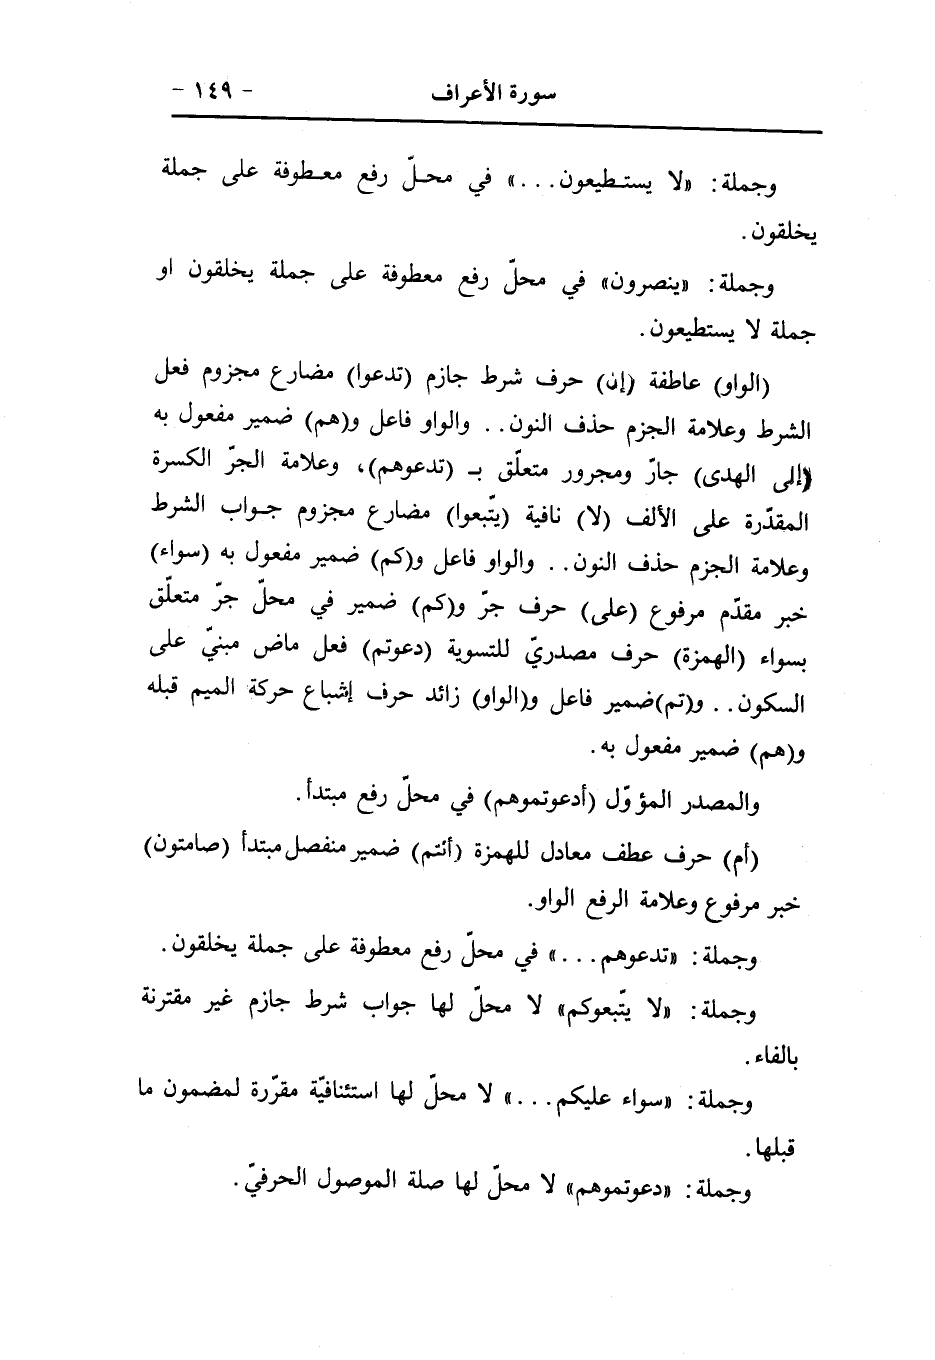 سورة الأعراف - ١٤٩ -
وجملة: «لا يستطيعون...» في محلّ رفع معطوفة على جملة
يخلقون.
وجملة: «ينصرون» في محلّ رفع معطوفة على جملة يخلقون او
جملة لا يستطيعون.
(الواو) عاطفة (إن) حرف شرط جازم (تدعوا) مضارع مجزوم فعل
الشرط وعلامة الجزم حذف النون.. والواو فاعل و(هم) ضمير مفعول به
(إلى الهدى) جارّ ومجرور متعلّق بـ (تدعوهم)، وعلامة الجرّ الكسرة
المقدّرة على الألف (لا) نافية (يتّبعوا) مضارع مجزوم جواب الشرط
وعلامة الجزم حذف النون.. والواو فاعل و(كم) ضمير مفعول به (سواء)
خبر مقدّم مرفوع (على) حرف جرّ و(كم) ضمير في محلّ جرّ متعلّق
بسواء (الهمزة) حرف مصدريّ للتسوية (دعوتم) فعل ماض مبنيّ على
السكون.. و(تم)ضمير فاعل و(الواو) زائد حرف إشباع حركة الميم قبله
و(هم) ضمير مفعول به.
والمصدر المؤوّل (أدعوتموهم) في محلّ رفع مبتدأ.
(أم) حرف عطف معادل للهمزة (أنتم) ضمير منفصل مبتدأ (صامتون)
خبر مرفوع وعلامة الرفع الواو.
وجملة: «تدعوهم...» في محلّ رفع معطوفة على جملة يخلقون.
وجملة: «لا يتّبعوكم» لا محلّ لها جواب شرط جازم غير مقترنة
بالفاء.
وجملة: «سواء عليكم...» لا محلّ لها استئنافيّة مقرّرة لمضمون ما
قبلها.
وجملة: «دعوتموهم» لا محلّ لها صلة الموصول الحرفيّ.